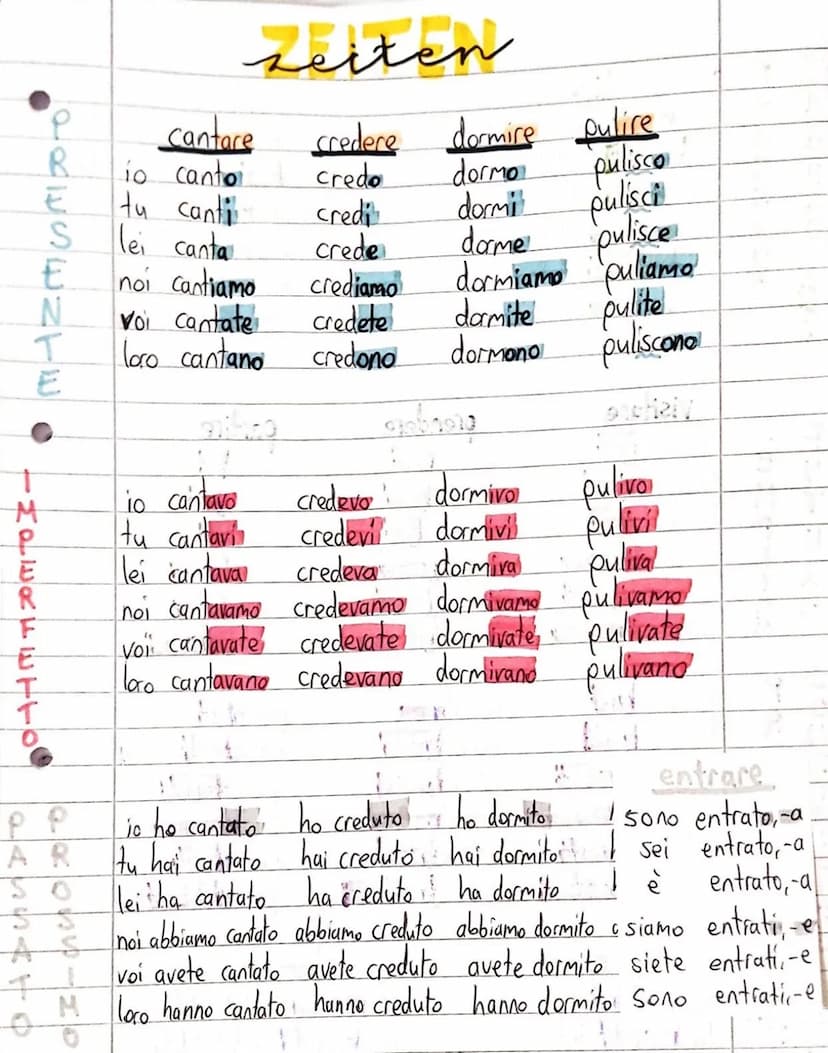 ZEITEN
zeiten
PRESENTE
cantare credere dormire pulire
io canto credo dormo pulisco
tu canti credi dormi pulisci
lei canta crede dorme pulisce
noi cantiamo crediamo dormiamo puliamo
voi cantate credete dormite pulite
loro cantano credono dormono puliscono
IMPERFETTO
io cantavo credevo dormivo pulivo
tu cantavi credevi dormivi pulivi
lei cantava credeva dormiva puliva
noi cantavamo credevamo dormivamo pulivamo
voi cantavate credevate dormivate pulivate
loro cantavano credevano dormivano pulivano
PASSATO PROSSIMO
entrare
io ho cantato ho creduto ho dormito sono entrato,-a
tu hai cantato hai creduto hai dormito sei entrato,-a
lei ha cantato ha creduto ha dormito è entrato,-a
noi abbiamo cantato abbiamo creduto abbiamo dormito siamo entrati,-e
voi avete cantato avete creduto avete dormito siete entrati,-e
loro hanno cantato hanno creduto hanno dormito sono entrati,-e